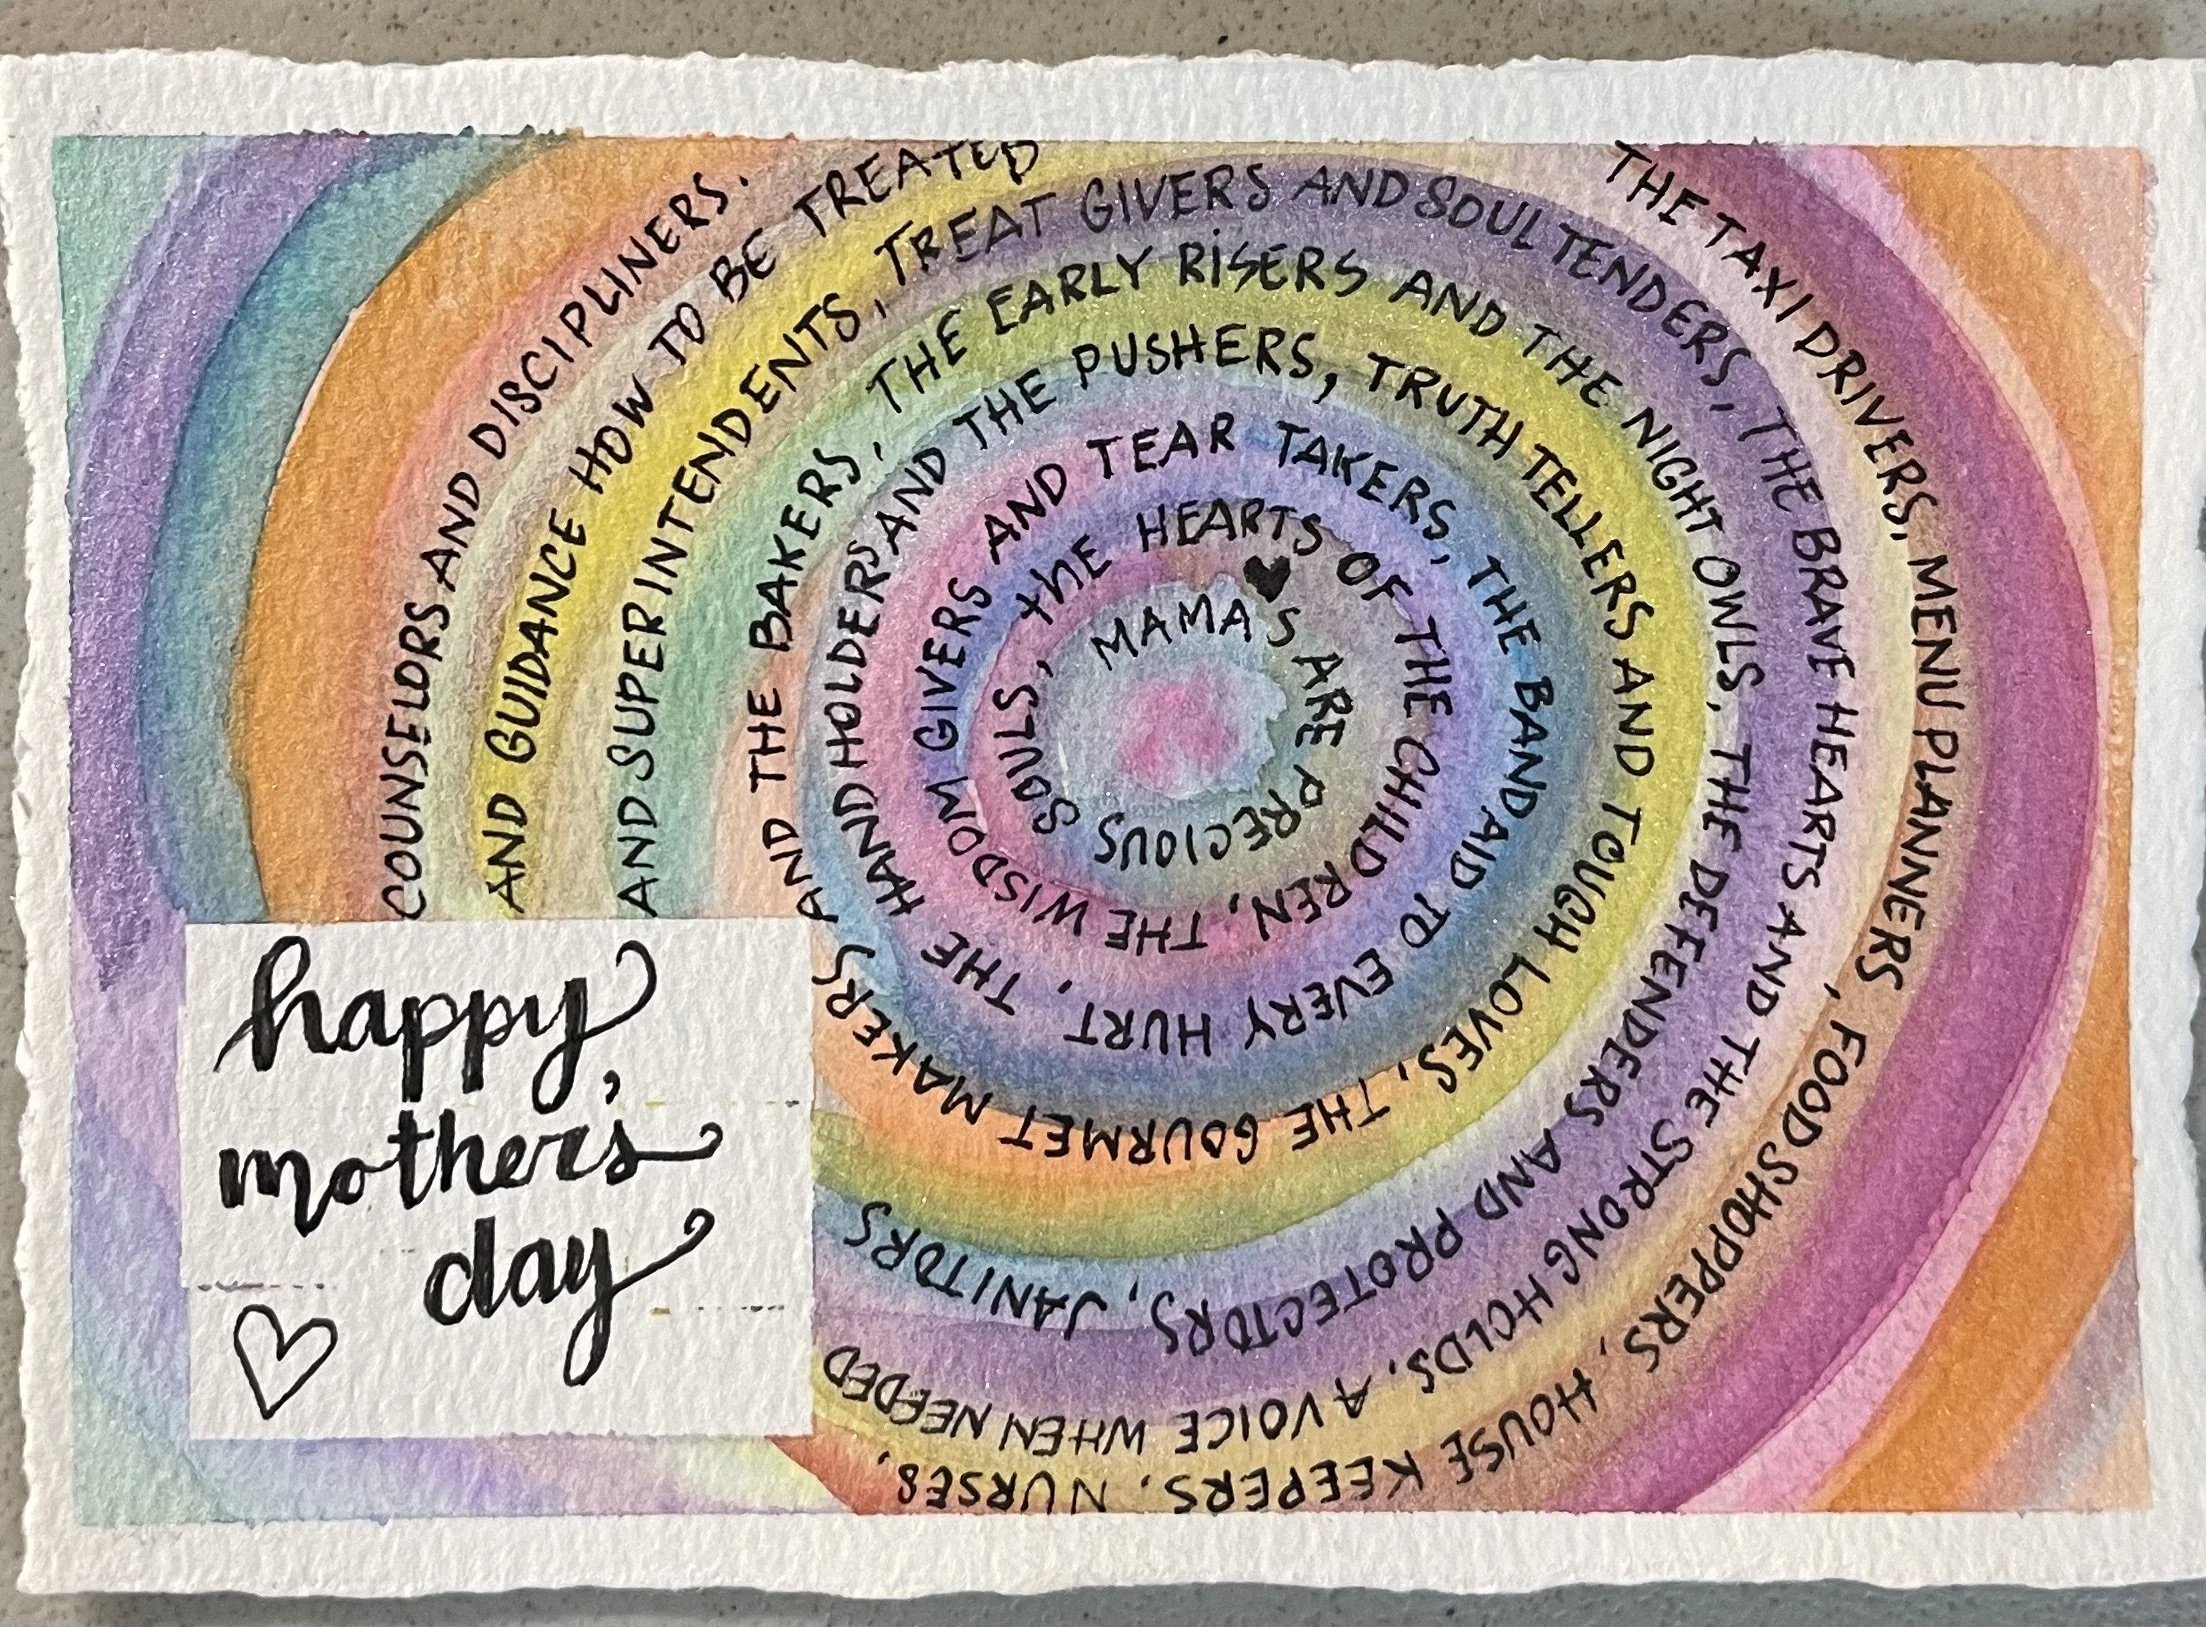 MAMA'S ARE PRECIOUS SOULS, the HEARTS OF THE CHILDREN, THE WISDOM GIVERS AND TEAR TAKERS, THE BANDAID TO EVERY HURT, THE HAND HOLDERS AND THE PUSHERS, TRUTH TELLERS AND TOUGH LOVES, THE GOURMET MAKERS AND THE BAKERS, THE EARLY RISERS AND THE NIGHT OWLS, THE DEFENDERS AND PROTECTORS, JANITORS
AND SUPERINTENDENTS, TREAT GIVERS AND SOUL TENDERS, THE BRAVE HEARTS AND THE STRONG HOLDS, A VOICE WHEN NEEDED
AND GUIDANCE HOW TO BE TREATED
THE TAXI DRIVERS, MENU PLANNERS, FOOD SHOPPERS, HOUSE KEEPERS, NURSES,
COUNSELORS AND DISCIPLINERS.
happy
mother's
day